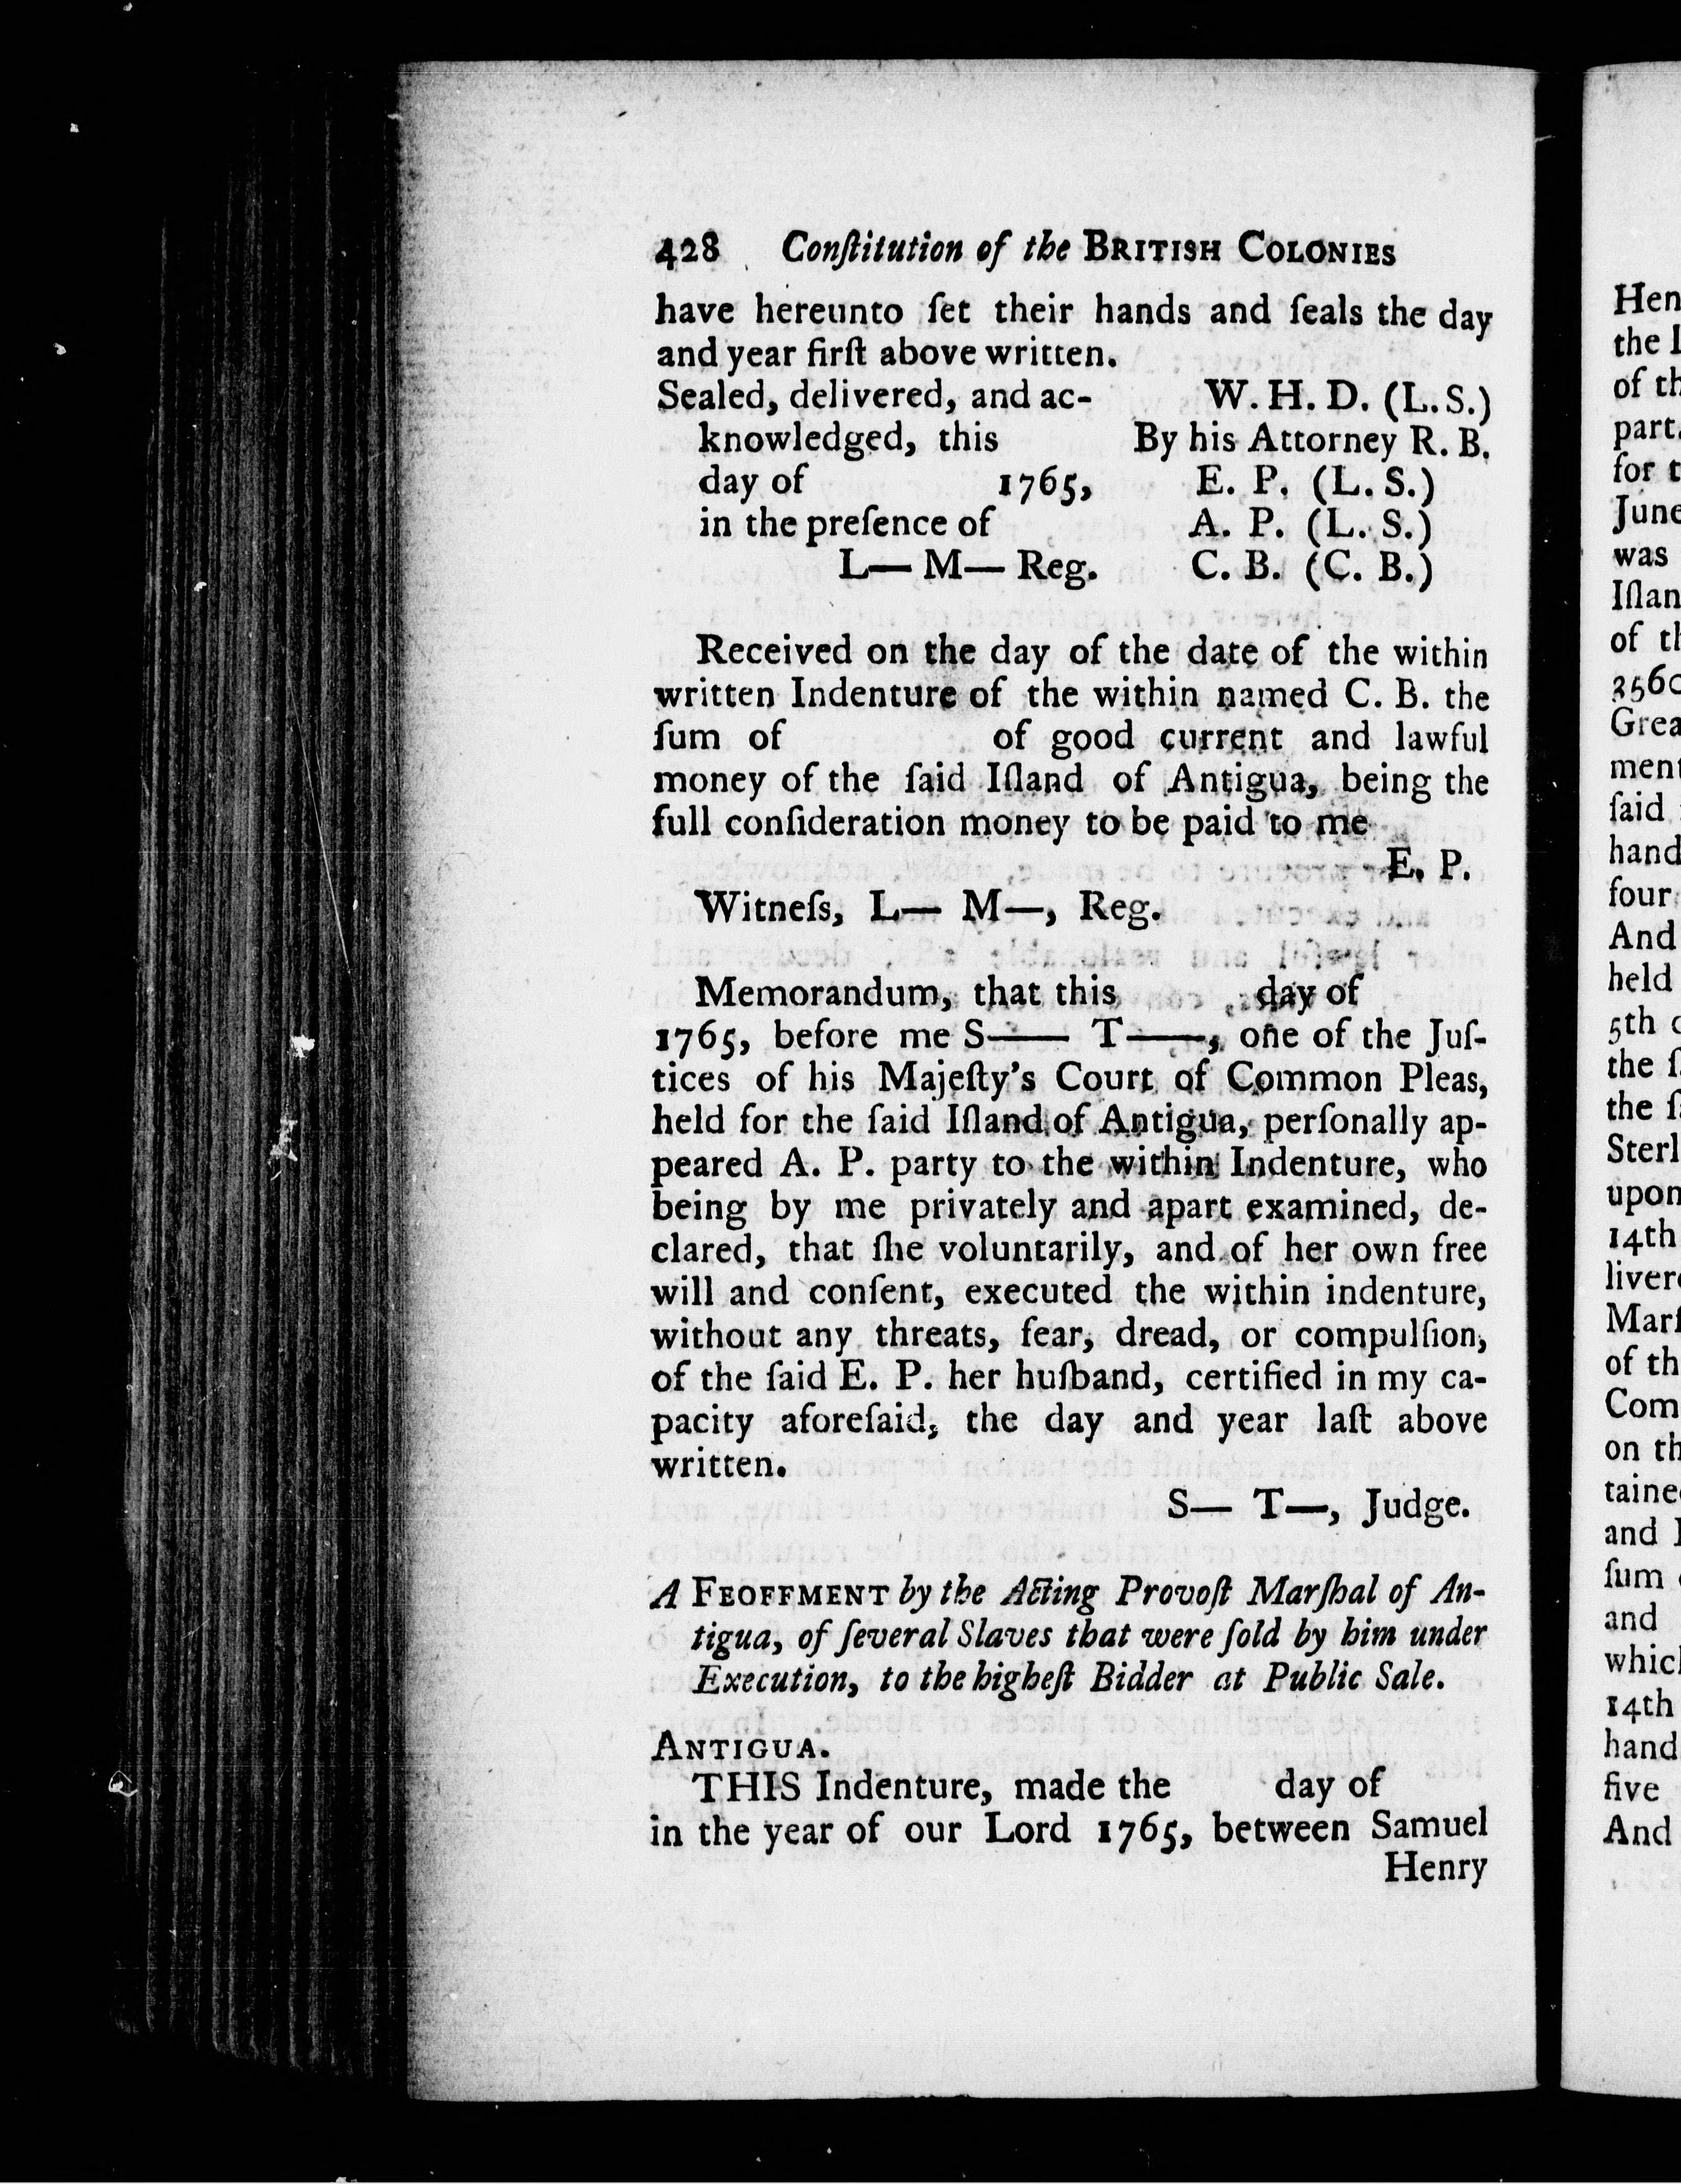 428 Conſtitution of the BRITISH COLONIES
have hereunto ſet their hands and ſeals the day
and year firſt above written.
Sealed, delivered, and ac- W. H. D. (L. S.)
knowledged, this By his Attorney R. B.
day of 1765, E. P. (L. S.)
in the preſence of A. P. (L. S.)
L— M— Reg. C. B. (C. B.)
Received on the day of the date of the within
written Indenture of the within named C. B. the
ſum of of good current and lawful
money of the ſaid Iſland of Antigua, being the
full conſideration money to be paid to me
E. P.
Witneſs, L— M—, Reg.
Memorandum, that this day of
1765, before me S—— T——, one of the Juſ-
tices of his Majeſty's Court of Common Pleas,
held for the ſaid Iſland of Antigua, perſonally ap-
peared A. P. party to the within Indenture, who
being by me privately and apart examined, de-
clared, that ſhe voluntarily, and of her own free
will and conſent, executed the within indenture,
without any threats, fear, dread, or compulſion,
of the ſaid E. P. her huſband, certified in my ca-
pacity aforeſaid, the day and year laſt above
written.
S— T—, Judge.
A FEOFFMENT by the Acting Provoſt Marſhal of An-
tigua, of ſeveral Slaves that were ſold by him under
Execution, to the higheſt Bidder at Public Sale.
ANTIGUA.
THIS Indenture, made the day of
in the year of our Lord 1765, between Samuel
Henry
Hen
the
of th
part.
for t
June
was
Iſlan
of th
Grea
ment
ſaid
hand
four
And
held
5th
the ſ
the ſ
Sterl
upon
14th
liver
Marſ
of th
Com
on th
taine
and
ſum
and
whic
14th
hand
five
And